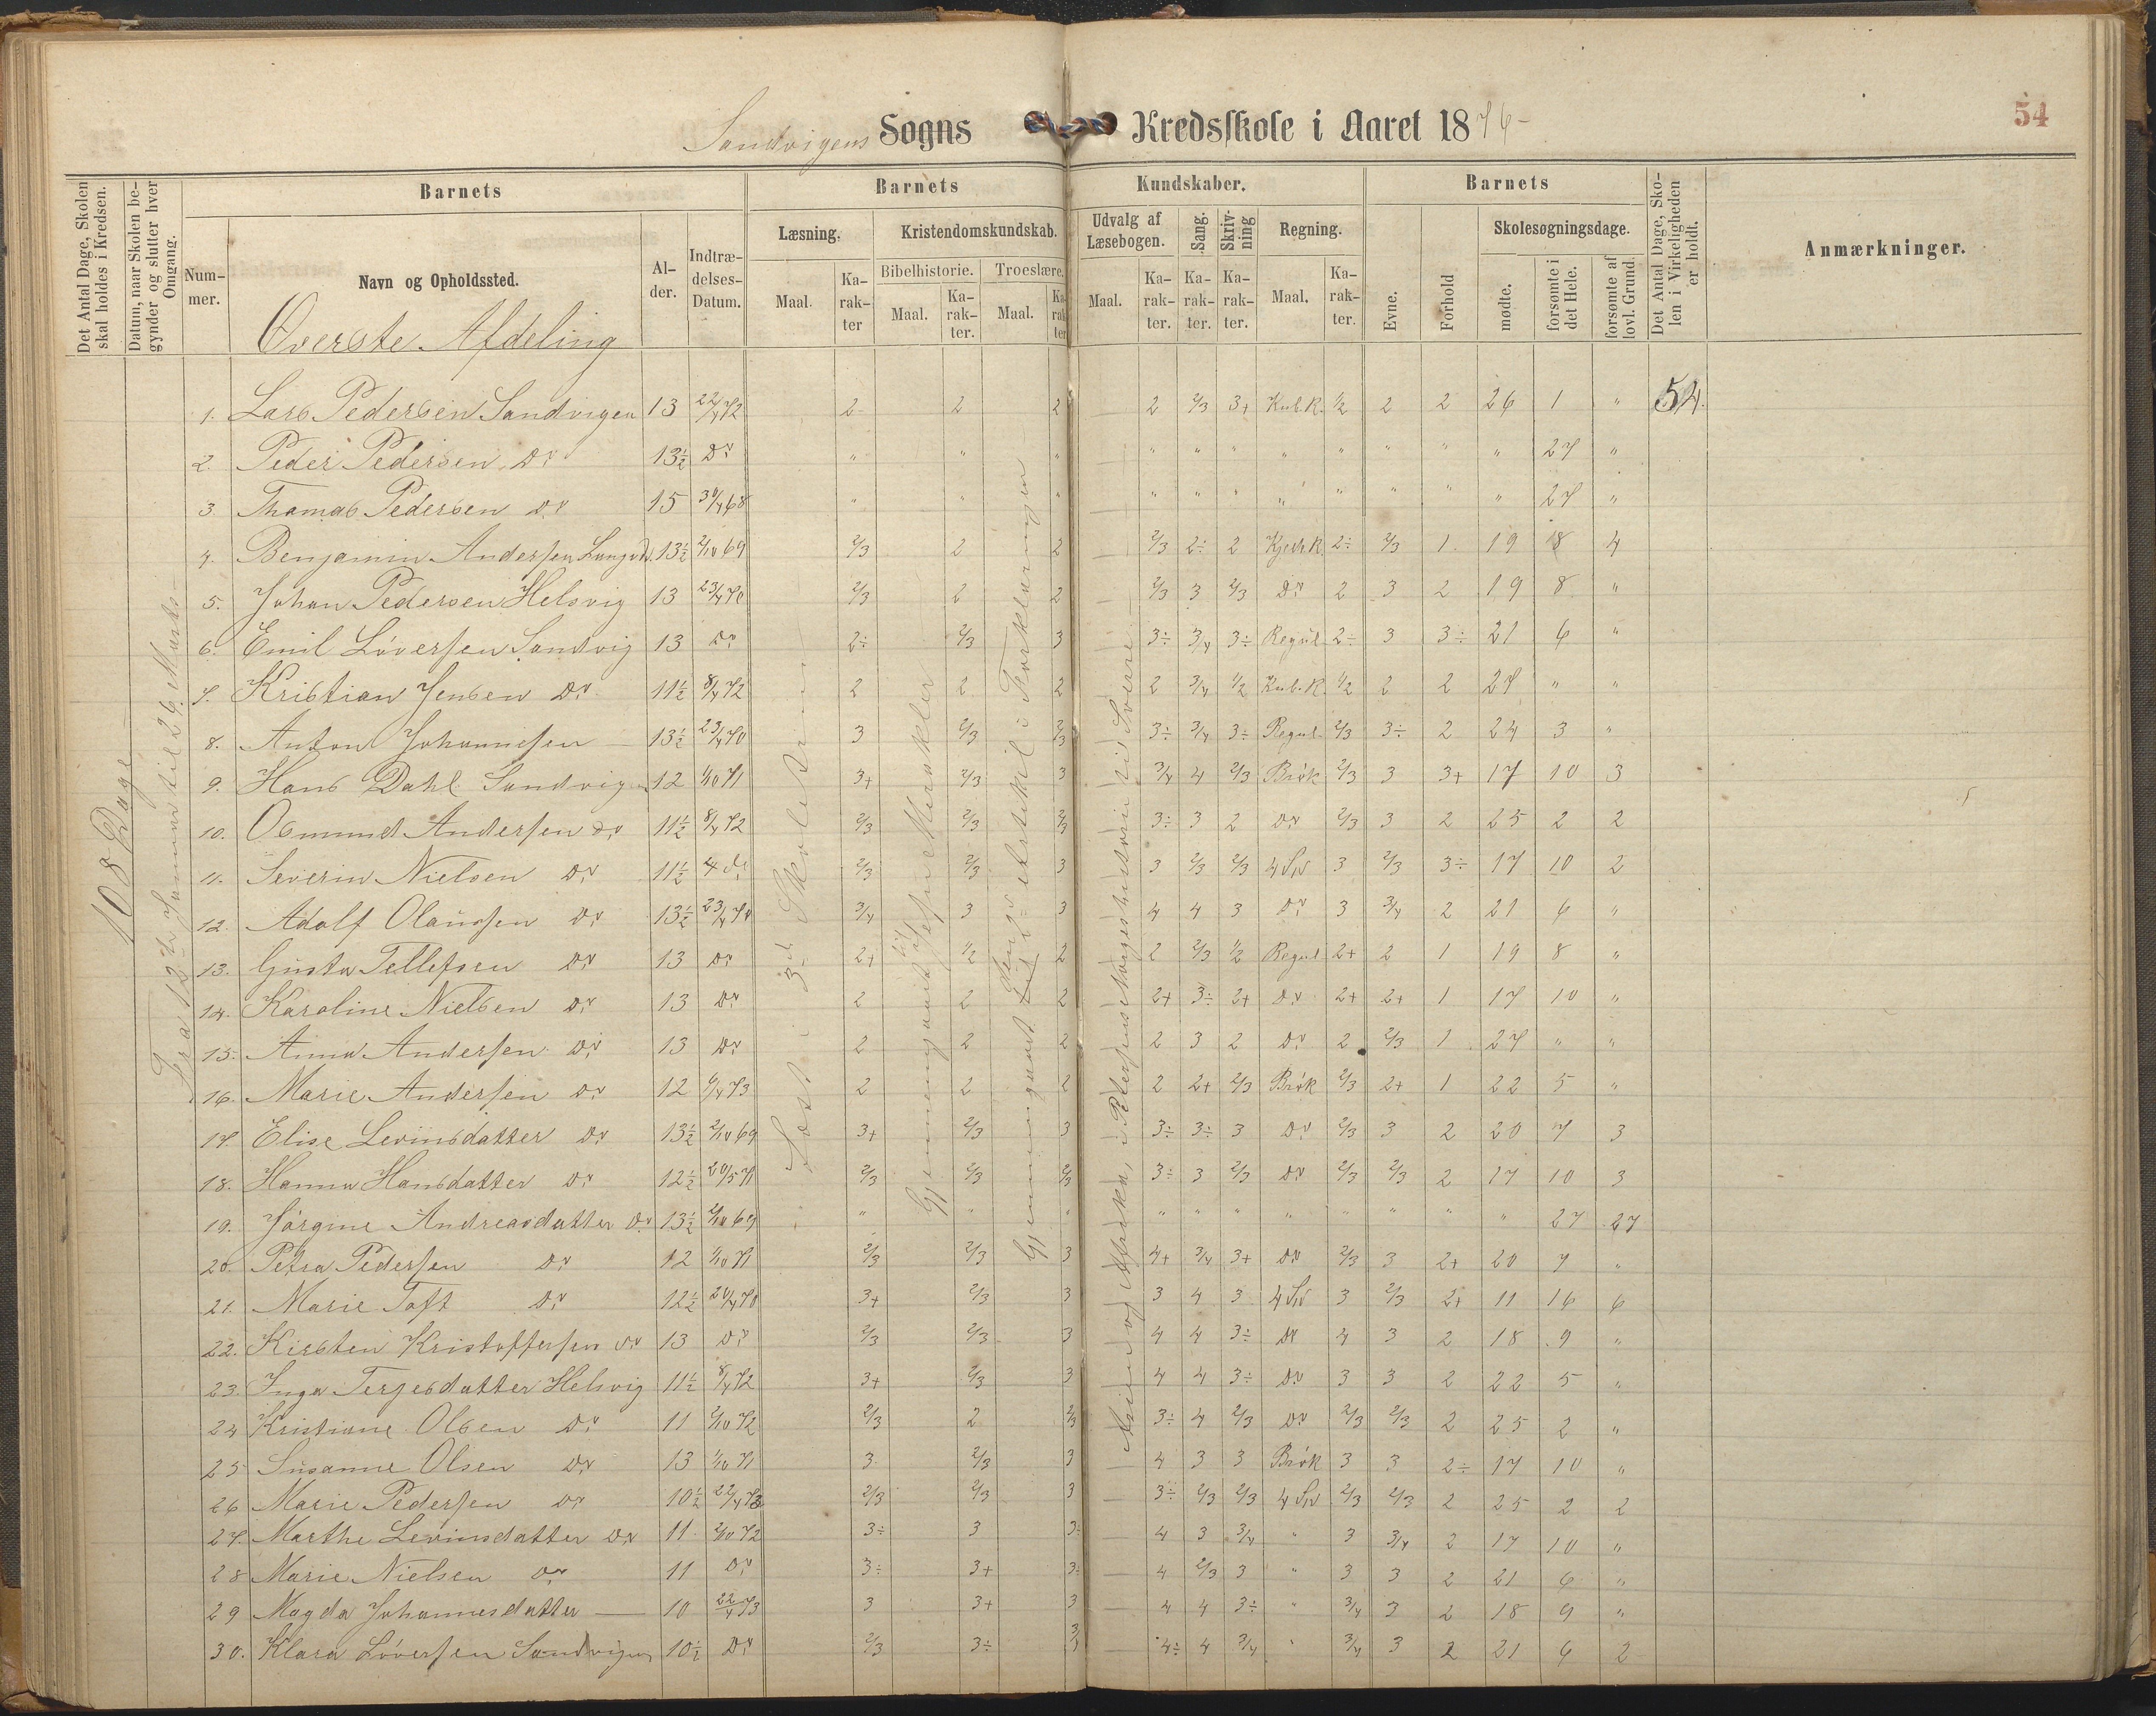 54
Sandvigens Sogns Kredsskole i Aaret 1876-
Det Antal Dage, Skolen skal holdes i Kredsen.
Datum, naar Skolen begynder og slutter hver Omgang.
Barnets
Barnets
Kundskaber.
Barnets
Det Antal Dage, Skolen i Virkeligheden er holdt.
Anmærkninger.
Nummer.
Navn og Opholdssted.
Alder.
Indtrædelses-Datum.
Læsning.
Kristendomskundskab.
Udvalg af Læsebogen.
Sang.
Skrivning
Regning.
Evne.
Forhold
Skolesøgningsdage.
Bibelhistorie.
Troeslære.
Maal.
Karakter
Maal.
Karakter.
Maal.
Karakter
Maal.
Karakter.
Karakter.
Karakter.
Maal.
Karakter.
mødte.
forsømte i det Hele.
forsømte af lovl. Grund.
Øverste Afdeling
108 Dage
Fra 12te Januar til 26. Marts
Læst i 3d Skoletrin
Gjennemgaaet til Jesu Mirakler
Gjennemgaaet til den 3 Artikel i Forklaringen
Asien og Afrika, i Petersens Norgeshistorie til Sverre
1. Lars Pedersen Sandvigen 13 22/4 72 2 2 2 2 2/3 3+ Kub.R. 1/2 2 2 26 1 " 54.
2. Peder Pedersen Do 13½ Do " " " " " " " " " " " 27 "
3 Thomas Pedersen Do 15 30/4 68 " " " " " " " " " " " 27 "
4. Benjamin Andersen 13½ 2/10 69 2/3 2 2 2/3 2÷ 2 2÷ 2/3 1 19 8 4
5. Johan Pedersen Helsvig 13 23/4 70 2/3 2 2 2/3 3 2/3 Do 2 3 2 19 8 "
6. Emil Løversen Sandvig 13 Do 2÷ 2/3 3 3÷ 3/4 3÷ Regul 2÷ 3 3÷ 21 6 "
7. Kristian Jensen Do 11½ 8/4 72 2 2 2 2 3/4 1/2 Kub.R. 1/2 2 2 27 " "
8. Anton Johannesen — 13½ 23/4 70 3 2/3 2/3 3÷ 3/4 3÷ Regul 2/3 3÷ 2 24 3 "
9. Hans Dahl Sandvigen 12 1/10 71 3+ 2/3 3 3/4 4 2/3 Brøk 2/3 3 3+ 17 10 3
10. Osmund Andersen do 11½ 8/4 72 2/3 2/3 2/3 3÷ 3 2 Do 2/3 3 2 25 2 2
11. Severin Nielsen Do 11½ 4 do 2/3 2/3 3 3 2/3 2/3 3 2/3 3÷ 17 10 2
12. Adolf Olaussen Do 13½ 23/4 70 3/4 3 3 4 4 3 Do 3 3/4 2 21 6 "
13. Gusta Tellefsen Do 13 Do 2+ 1/2 2 2 2/3 1/2 Regul 2+ 2 1 19 8 "
14. Karoline Nielsen Do 13 Do 2 2 2 2+ 3÷ 2+ Do 2+ 2+ 1 17 10 "
15. Anna Andersen Do 13 Do 2 2 2 2 3 2 Do 2 2/3 1 27 " "
16. Marie Andersen Do 12 6/4 73 2 2 2 2 2+ 2/3 Brøk 2/3 2+ 1 22 5 "
17. Elise Levinsdatter Do 13½ 2/10 69 3+ 2/3 3 3÷ 3÷ 3 Do 2/3 3 2 20 7 3
18. Hanna Hansdatter Do 12½ 20/5 71 2/3 2/3 2/3 3÷ 3 2/3 Do 2/3 2/3 2 17 10 3
19. Jørgine Andreasdatter Do 13½ 2/10 69 " " " " " " " " " " " 27 27
20. Petra Pedersen Do 12 1/10 71 2/3 2/3 3 4+ 3/4 3+ Do 2/3 3 2+ 20 7 "
21. Marie Toft Do 12½ 20/4 70 3+ 2/3 3 3 4 3 3 2/3 2+ 11 16 6
22. Kirsten Kristoffersen Do 13 Do 2/3 2/3 3 4 4 3÷ Do 4 3 2 18 9 "
23. Inga Terjesdatter Helsvig 11½ 8/4 72 3+ 2/3 3 4 4 3÷ Do 3 3 2 22 5 "
24 Kristiane Olsen Do 11 2/10 72 2/3 2 2/3 3÷ 4 2/3 Do 2/3 2/3 2 25 2 "
25 Susanne Olsen Do 13 1/10 71 3 2/3 3 4 3 3 Brøk 3 3 2÷ 17 10 "
26 Marie Pedersen Do 10½ 22/4 73 2/3 2/3 3 3÷ 2/3 2/3 2/3 2/3 2 25 2 2
27. Marthe Levinsdatter Do 11 2/10 72 3÷ 3 3÷ 4 3 3/4 " 3 3/4 2 17 10 "
28 Marie Nielsen Do 11 Do 3÷ 3+ 3÷ 4 2/3 3 " 3 3 2 21 6 "
29 Magda Johannesdatter — 10 22/4 73 3 3+ 3 4 4 3÷ " 3/4 3 2 18 9 "
30. Klara Løversen Sandvigen 10½ Do 2/3 3÷ 3/4 4÷ 4 3/4 " 3/4 3 2 21 6 2